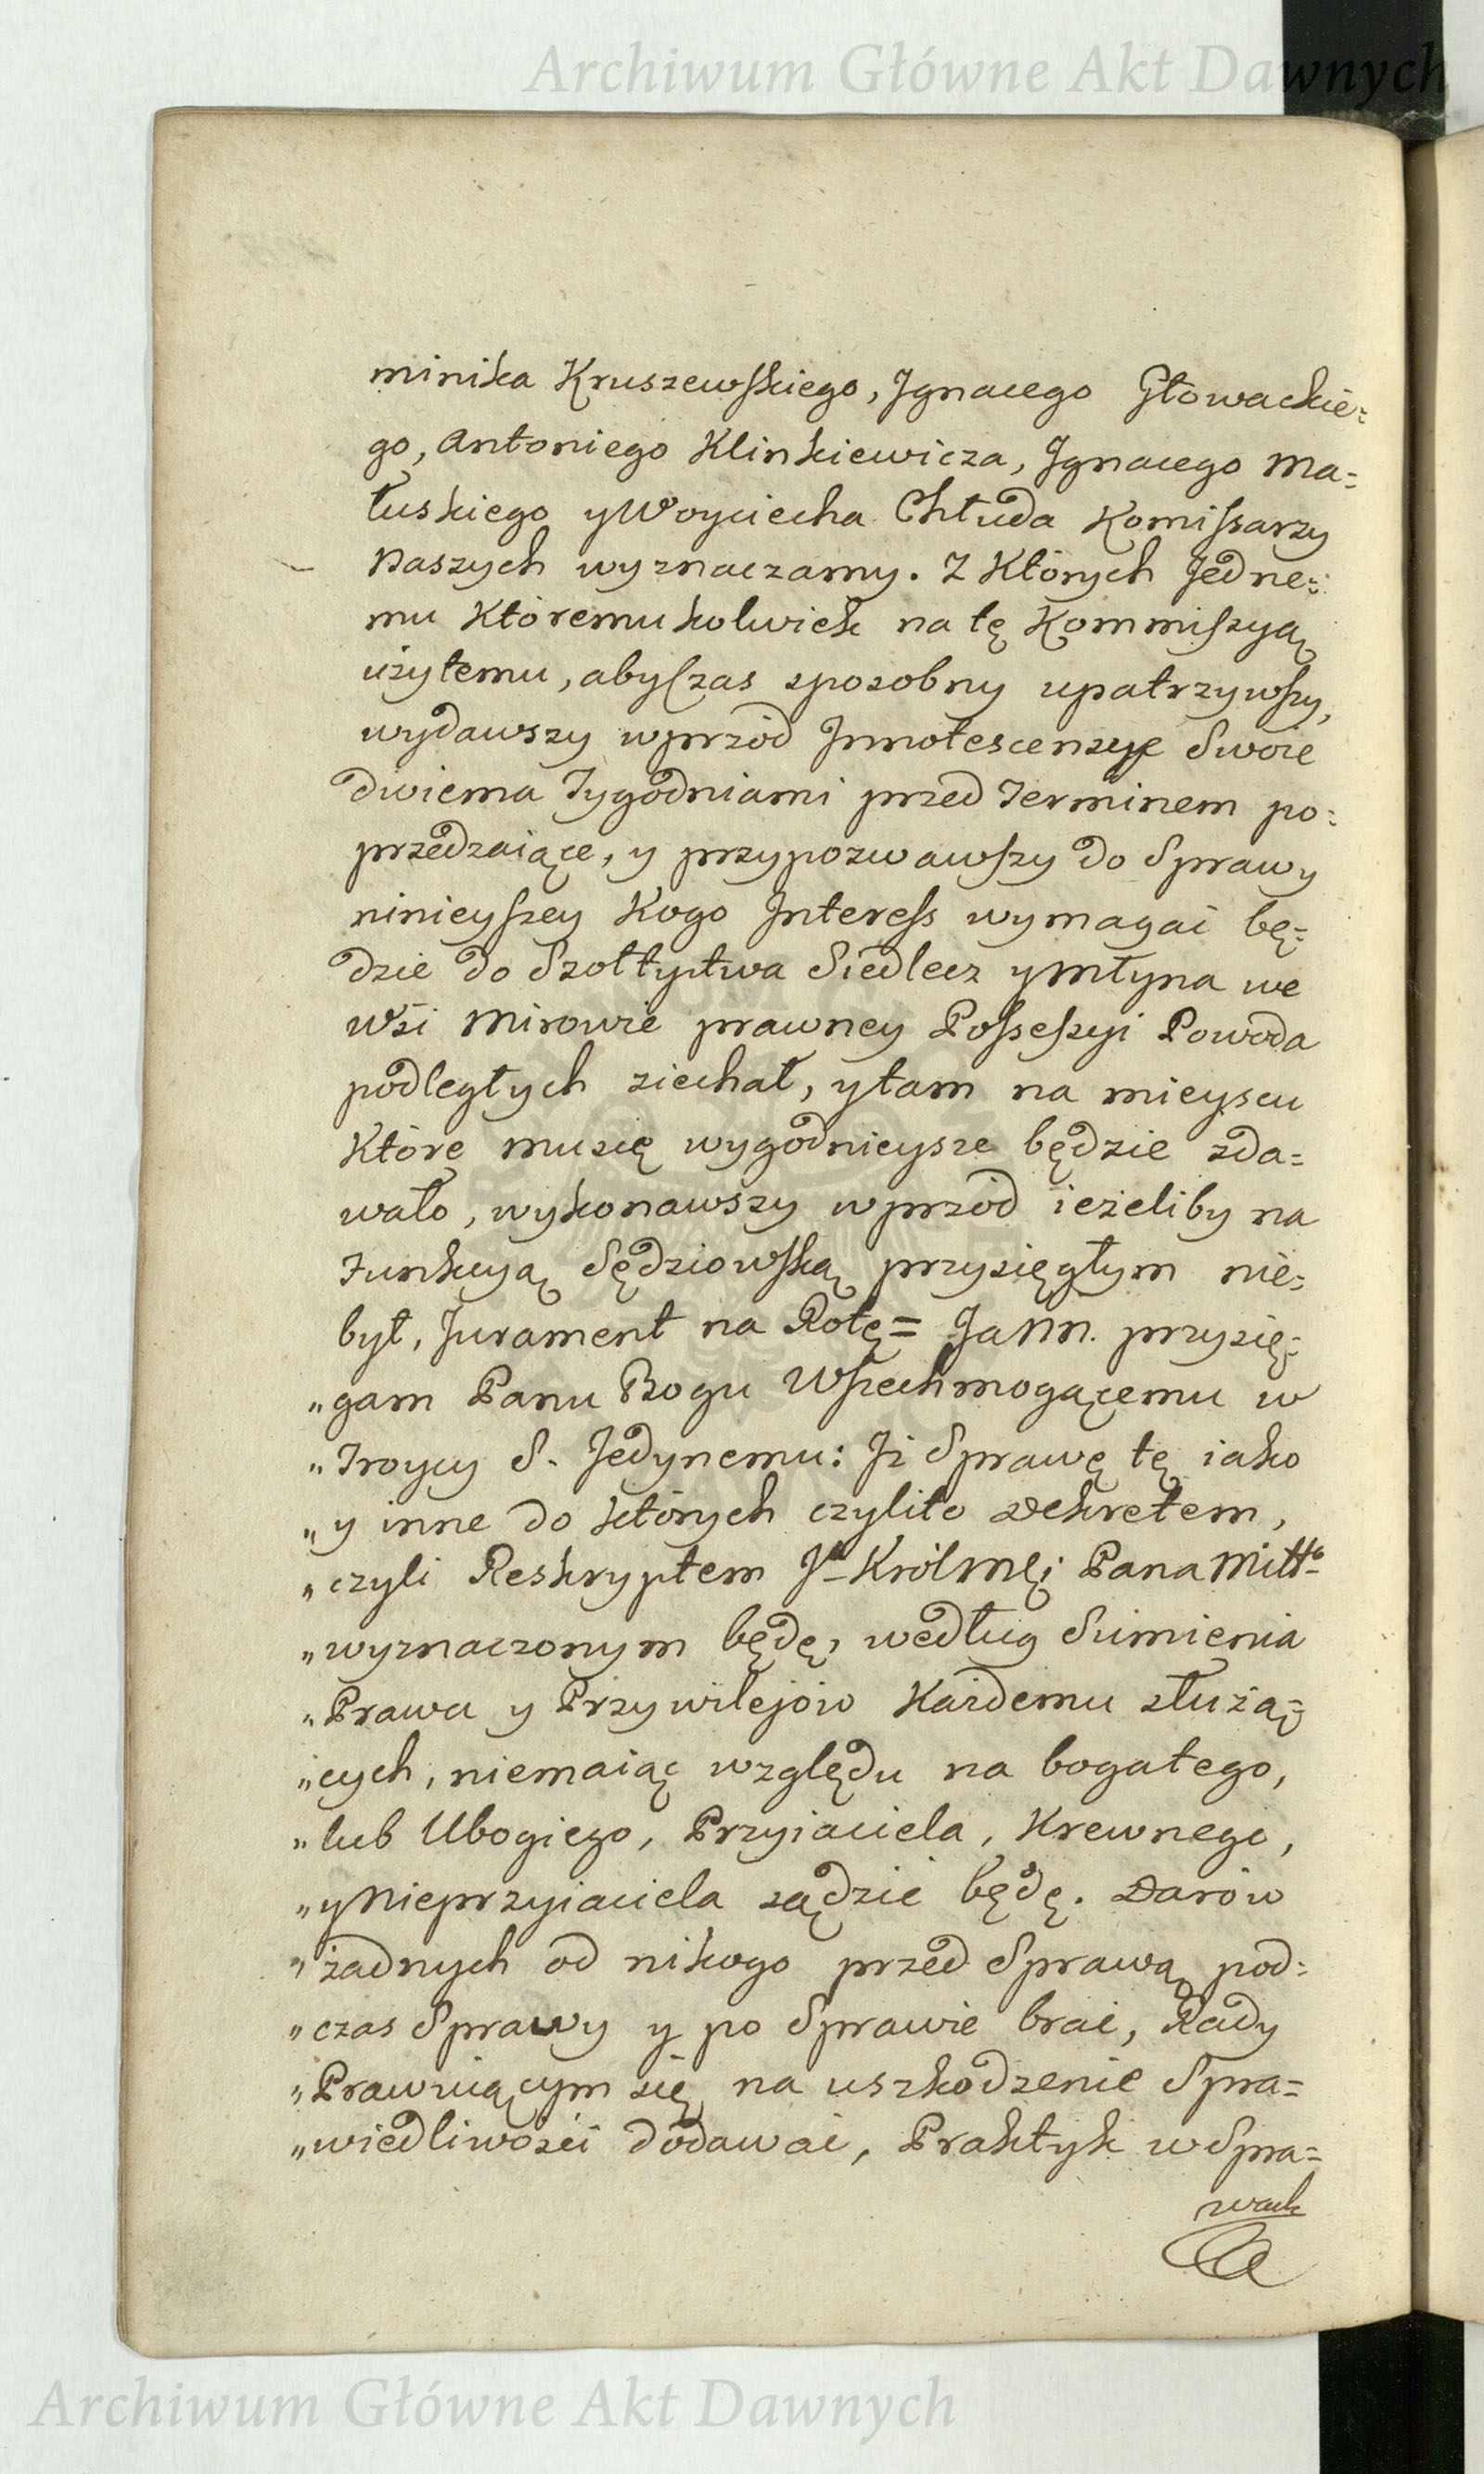 Archiwum Główne Akt Dawnych
minika Kruszewskiego, Ignacego Głowackie=
go, Antoniego Klinkiewicza, Ignacego Ma=
łuskiego y Woyciecha Chłuda Komissarzy
Naszych wyznaczamy. Z Których Jedne=
mu Któremukolwiek na tę Kommiszyą
użytemu, aby czas sposobny upatrzywszy,
wydawszy wprzód Innotescencye Swoie
dwiema Tygodniami przed Terminem po=
przedzaiące, y przypozwawszy do Sprawy
ninieyszey Kogo Interess wymagać bę=
dzie do Szołtystwa Siedlecz y Młyna we
wsi Mirowie prawney Possessyi Powoda
podległych ziechał, y tam na mieyscu
Które mu się wygodnieysze będzie zda=
wało, wykonawszy wprzód ieżeliby na
Funkcyą Sędziowską przysięgłym nie=
był, Jurament na Rotę = Ja NN. przysię=
„gam Panu Bogu Wszechmogącemu w
„Troycy S. Jedynemu: Iż Sprawę tę iako
„y inne do których czylito Dekretem,
„czyli Reskryptem J. Król Mći Pana Miłł.
„wyznaczonym będę, według Sumienia
„Prawa y Przywilejów Każdemu służą=
„cych, niemaiąc względu na bogatego,
„lub Ubogiego, Przyiaciela, Krewnego,
„y Nieprzyiaciela sądzić będę. Darów
„żadnych od nikogo przed Sprawą pod=
„czas Sprawy y po Sprawie brać, Rady
„Prawuiącym się na uszkodzenie Spra=
„wiedliwości dodawać, Praktyk w Spra=
wach
Archiwum Główne Akt Dawnych